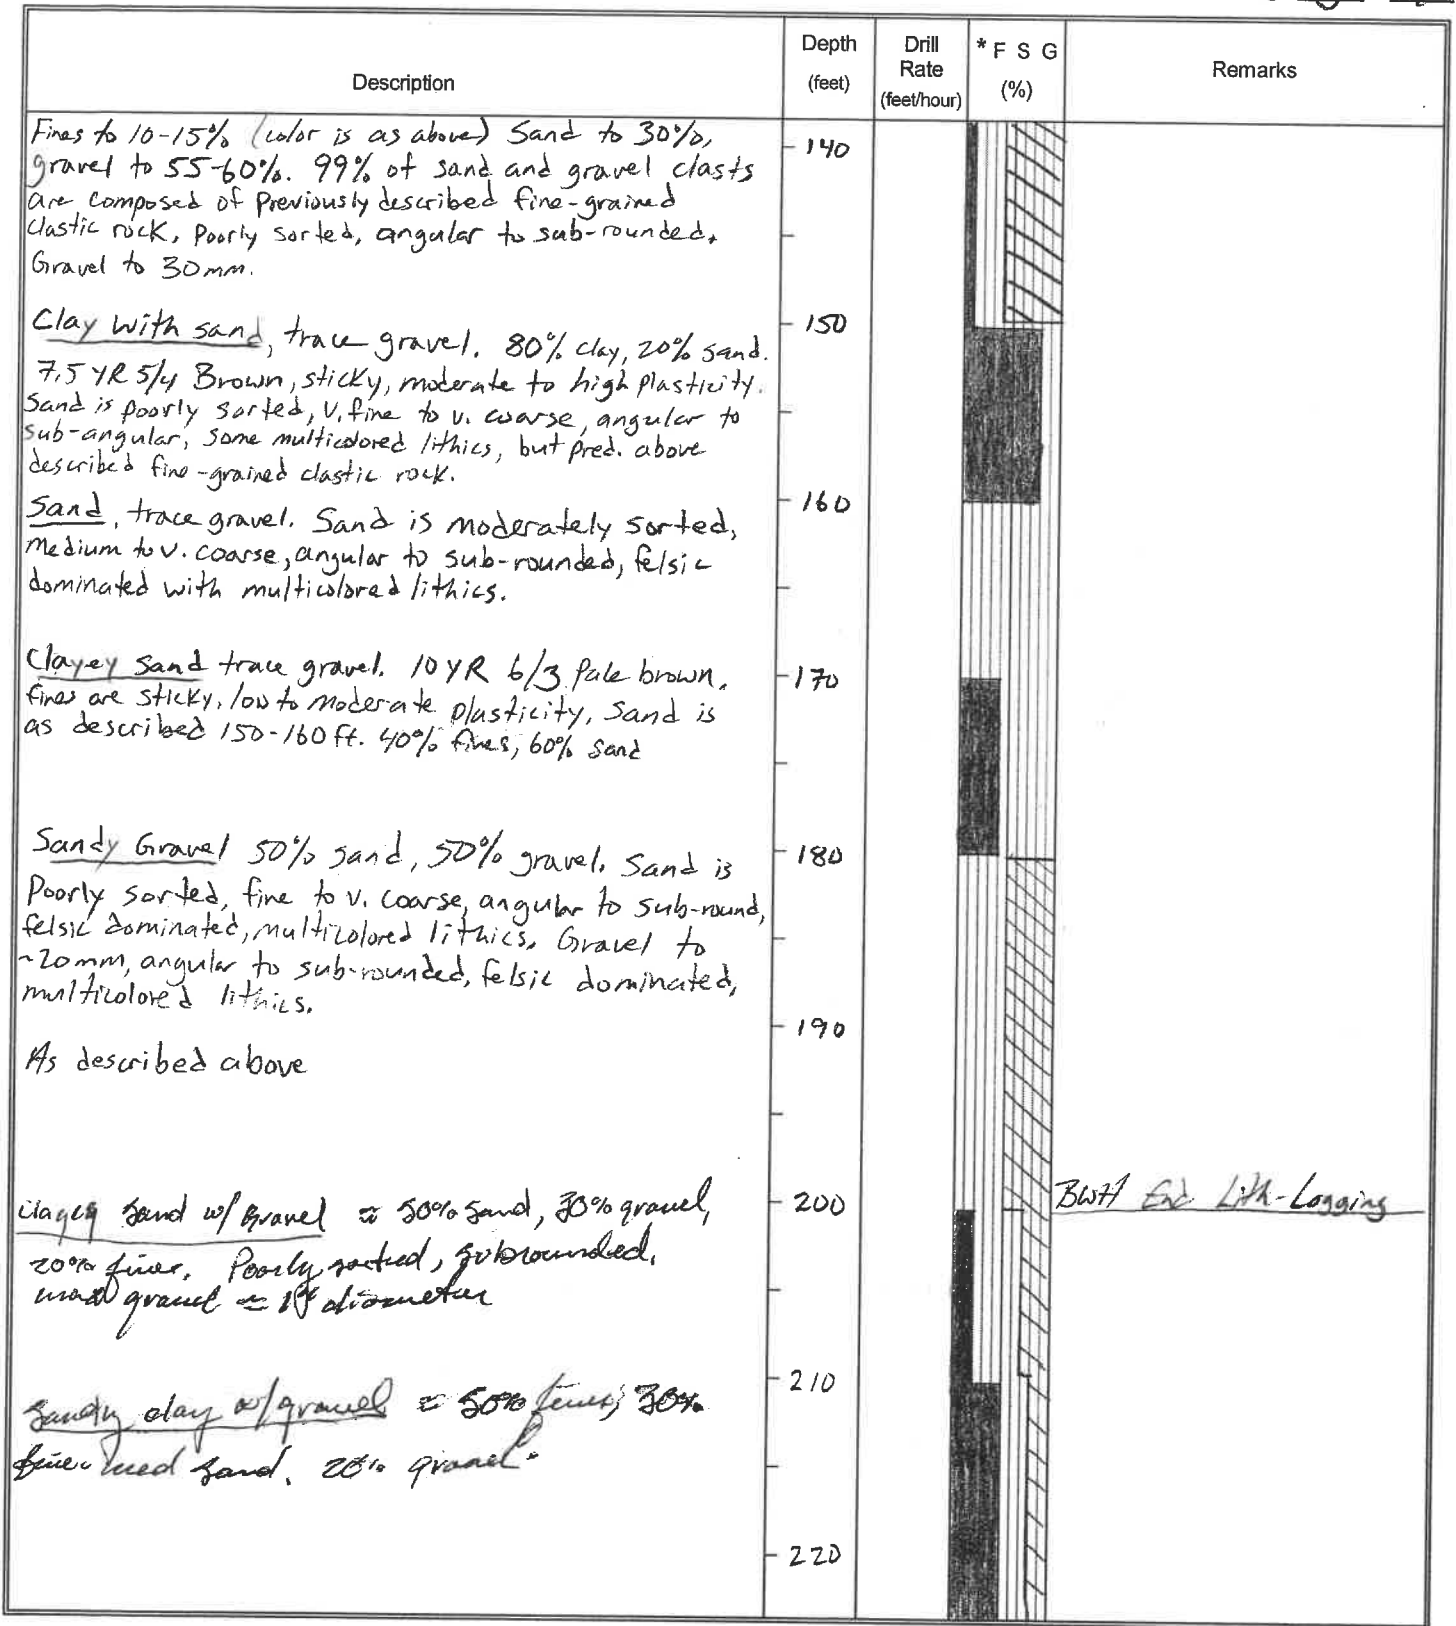 Description
Depth
(feet)
Drill
Rate
(feet/hour)
* F S G
(%)
Remarks
Fines to 10-15% (color is as above) Sand to 30%,
gravel to 55-60%. 99% of sand and gravel clasts
are composed of previously described fine-grained
clastic rock, poorly sorted, angular to sub-rounded.
Gravel to 30mm.
140
Clay with sand, trace gravel. 80% clay, 20% sand.
7.5 YR 5/4 Brown, sticky, moderate to high plasticity.
Sand is poorly sorted, v. fine to v. coarse, angular to
sub-angular, some multicolored lithics, but pred. above
described fine-grained clastic rock.
150
Sand, trace gravel. Sand is moderately sorted,
medium to v. coarse, angular to sub-rounded, felsic
dominated with multicolored lithics.
160
Clayey Sand trace gravel. 10 YR 6/3 Pale brown.
fines are sticky, low to moderate plasticity, Sand is
as described 150-160 ft. 40% fines, 60% sand
170
Sandy Gravel 50% sand, 50% gravel. Sand is
Poorly sorted, fine to v. coarse, angular to sub-round,
felsic dominated, multicolored lithics. Gravel to
~20mm, angular to sub-rounded, felsic dominated,
multicolored lithics.
180
190
As described above
Clayey Sand w/ gravel ≈ 50% sand, 30% gravel,
20% fines. Poorly sorted, subrounded,
gravel ≈ 1" diameter
200
End Lith-Logging
Sandy clay w/gravel ≈ 50% fines, 30%
fine-med sand. 20% gravel.
210
220